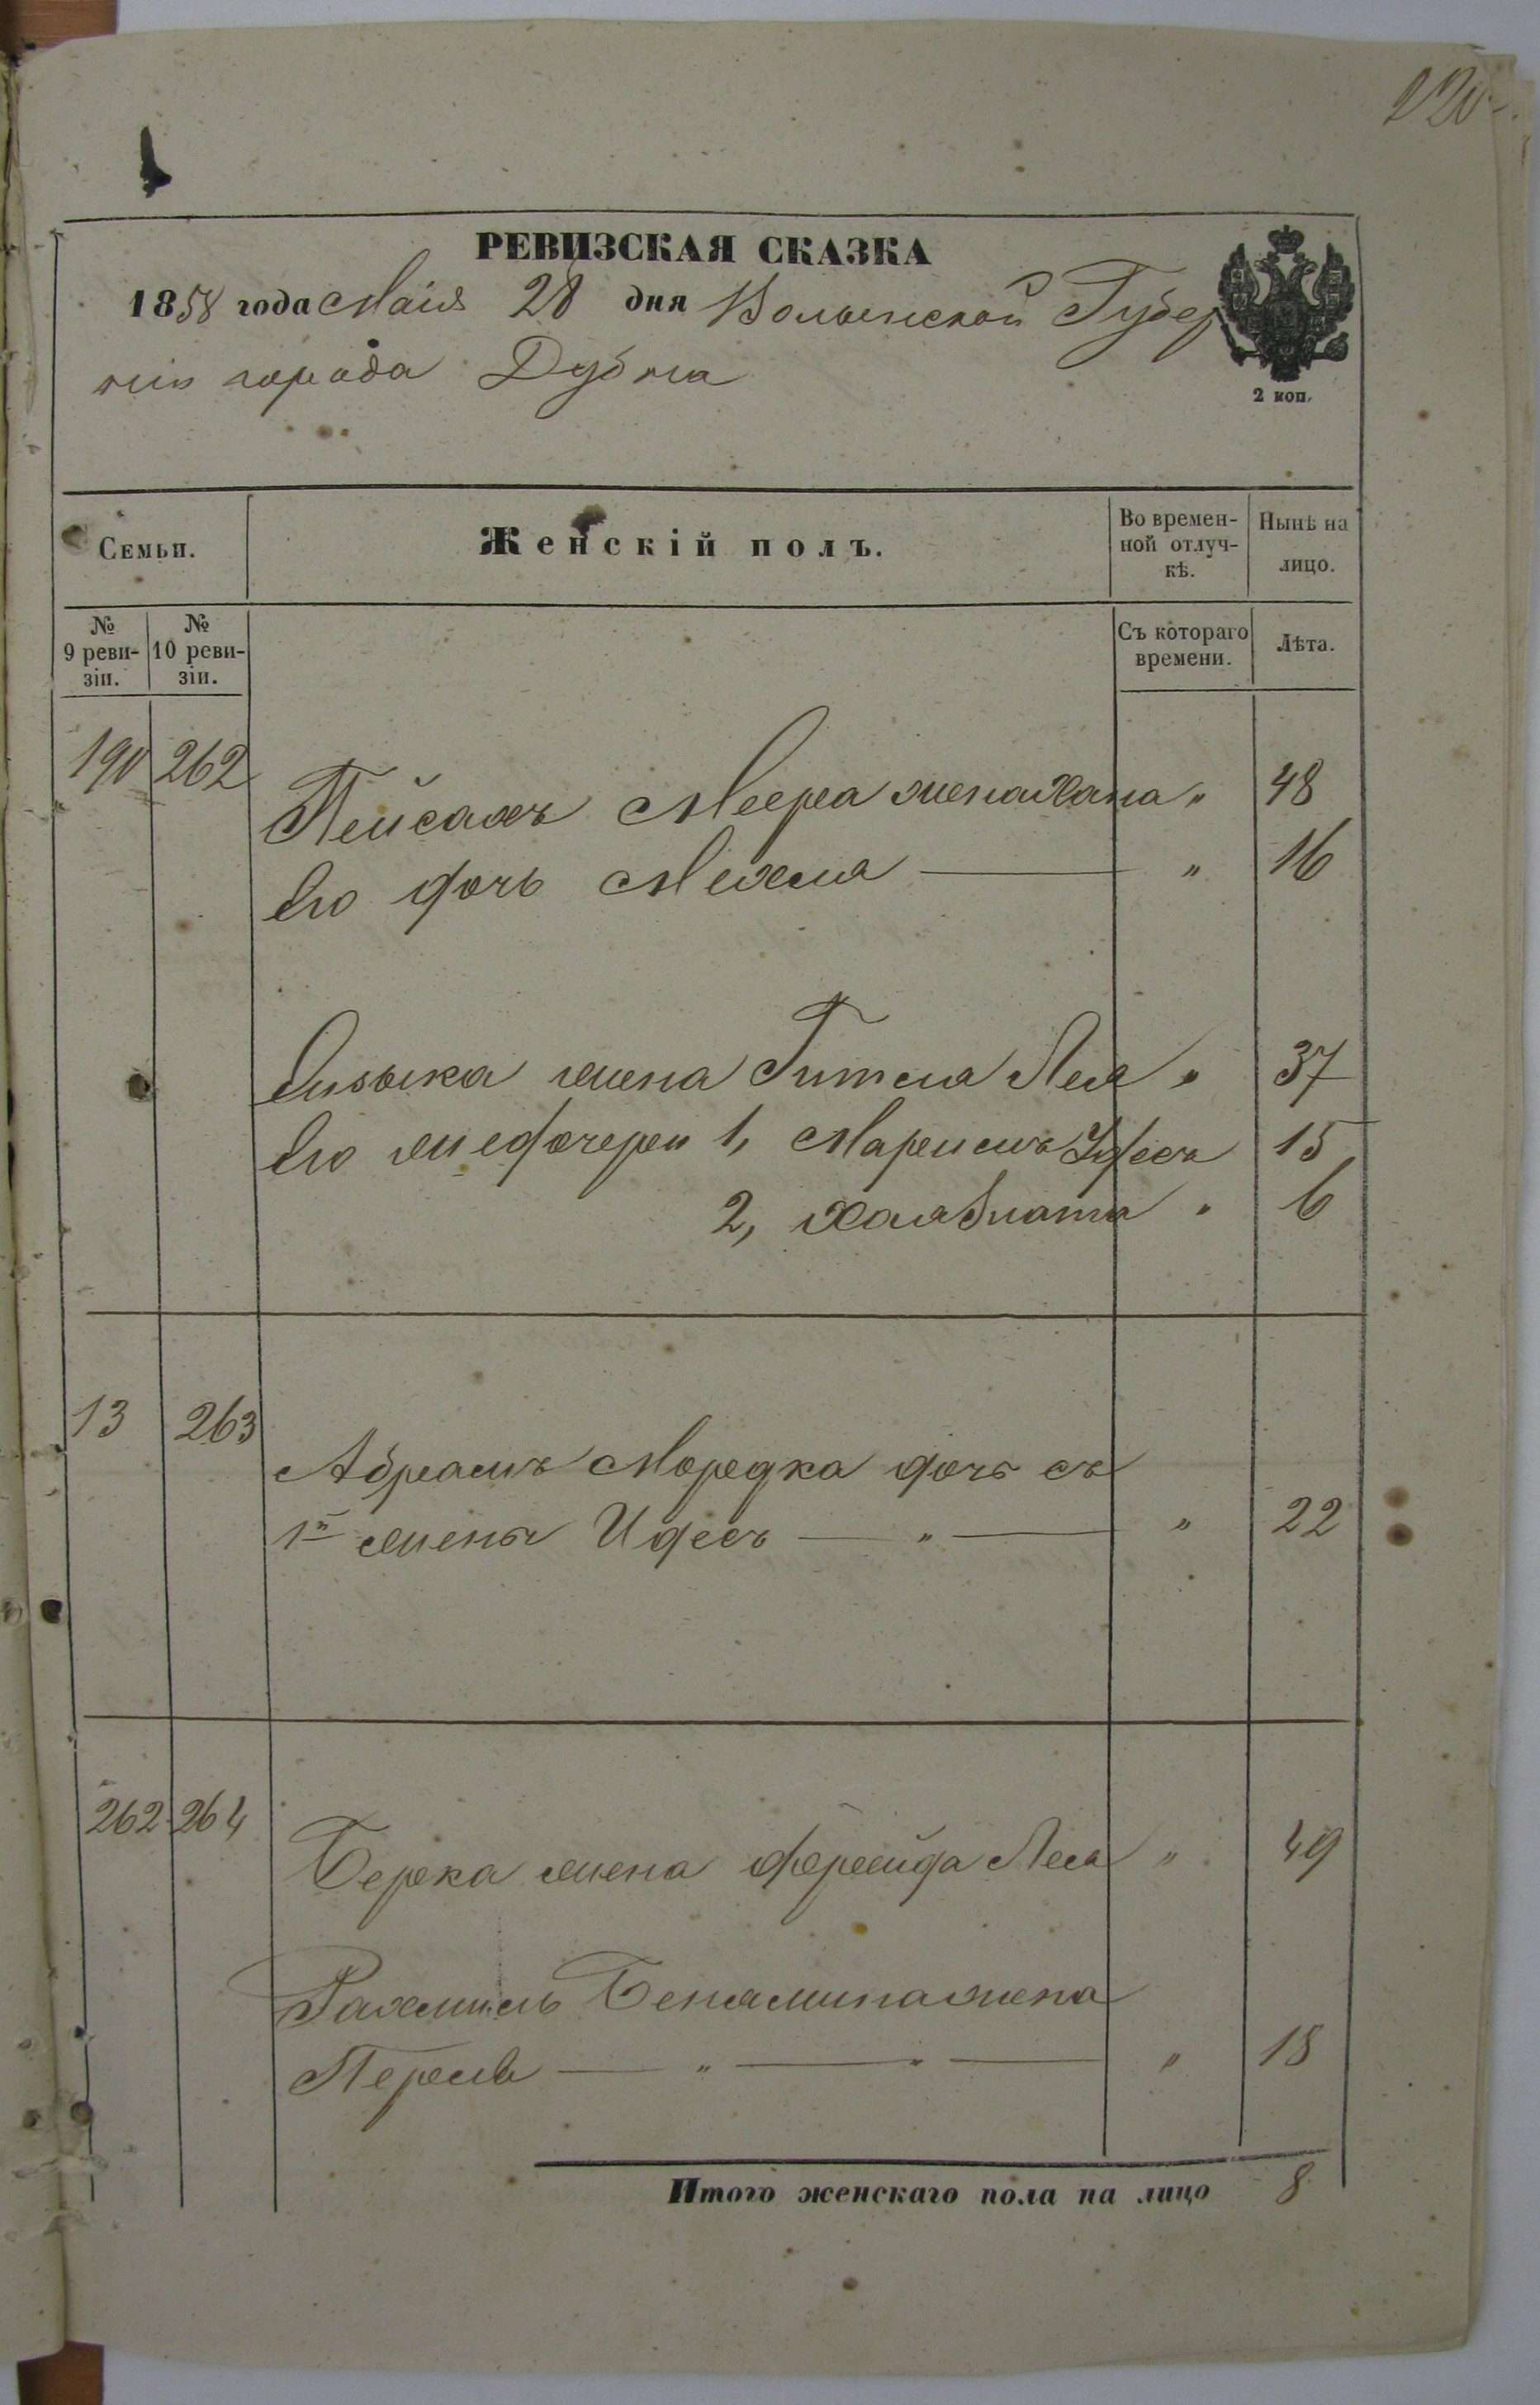 220
РЕВИЗСКАЯ СКАЗКА
1858 года Маія 28 дня Волынской Губер
ніи города Дубна
2 коп.
Семьи.
Женскій полъ.
Во времен-
ной отлуч-
кѣ.
Нынѣ на
лицо.
№
9 реви-
зіи.
№
10 реви-
зіи.
Съ котораго
времени.
Лѣта.
190 262
Пейсахъ Меера жена Хана " 48
Его дочь Мехля " 16
жена Гитля Лея " 37
Его же дочери 1, 15
2, Хая Злата " 6
13 263
Абрамъ Мордка дочь съ
1й жены Идесъ " " 22
262 264
Берка жена Фрейда Лея " 49
Рахмиль Бенямина жена
Перель " " " 18
Итого женскаго пола на лицо 8